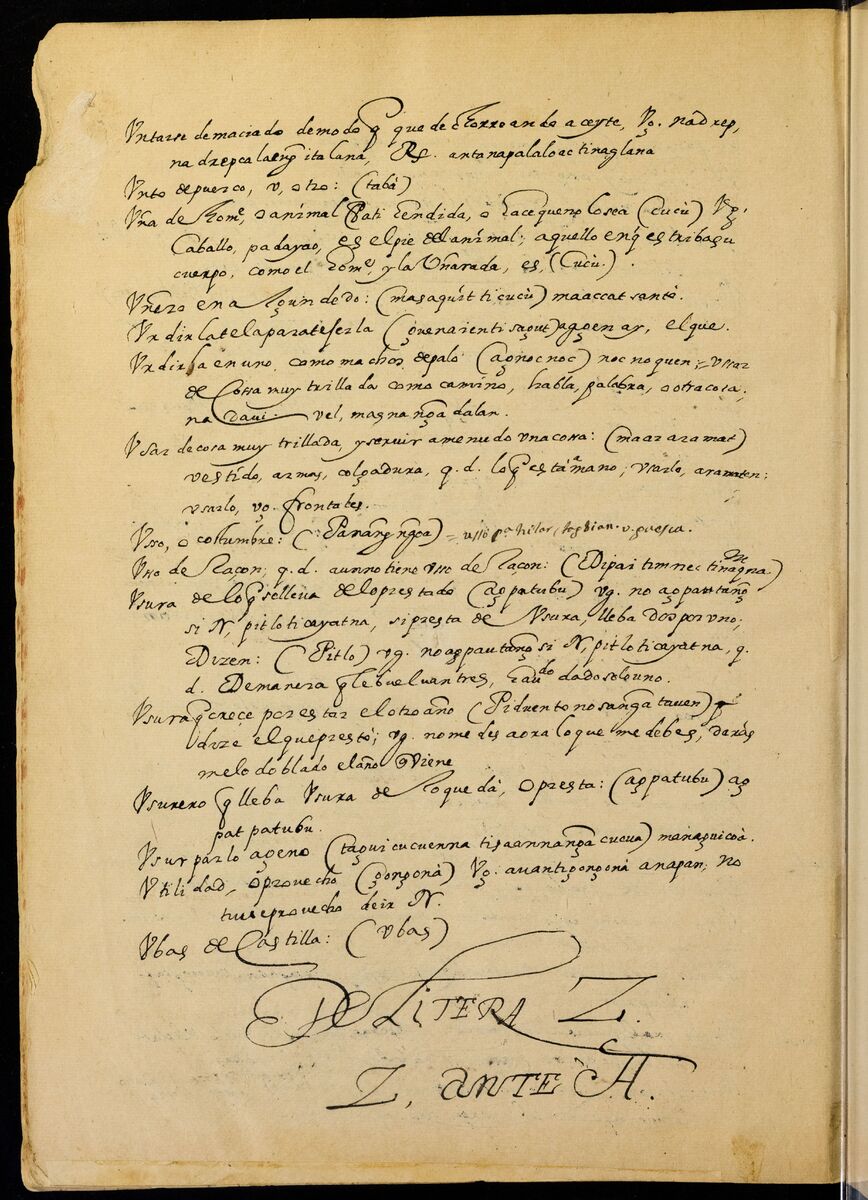 Vntarse demaciado demodo q̃ que de chorro ando aceyte, Vg. nadrep,
nadrepcalaeng̃ italana, Rs. antanapalaloactinaglana
Vnto de puerco, v, otro: (tabà)
Vña de home, o animal Pati hendida, o haceque no lo sea (cucù) Vg.
Caballo, padayao, es el pie del animal; aquello enq̃ estribasu
cuerpo, como el home, y la Vñarada, es, (cucù.)
Vñero en algun dedo: (masaquit ti cucù) maaccat santo.
Vrdir la tela para texerla aggenay, el que.
Vrdirla en uno, como machos de palo (agnocnoc) nocnoquen; = vssar
de cossa muy trillada como camino, habla, palabra, o otra cosa;
na daui. vel, magnang̃adalan.
Vsar de cosa muy trillada, y servir a menudo vna cossa: (maaramat)
vestido, armas, colgadura, q. d. loq̃ està a mano; vsarlo, aramaten;
vsarlo, vg. frontales.
Vsso, o costumbre: = usso pa hilar
Vsso de Raçon; q. d. aun no tiene vsso de Raçon: (Dipai timnec
Vsura de loq̃ se lleva de lo prestado (agpatubu) vg. no agpautang̃
si N, pitlo ti cayatna, si presta de Vsura, lleba dos por uno;
Dizen: (Pitlo) vg. no agpautang̃ si N, pitlo ti cayatna, q.
d. De manera q̃ le buelvan tres, haudo dado solo uno.
Vsura q̃ crece por estar el otro año (Piduento no sang̃a tauen)
dize el que prestò; vg. no me des aora lo que me debes, daràs
melo doblado el año q̃ viene
Vsurero q̃ lleba Vsura de lo que dà, o presta: (agpatubu) ag
pat patubu.
Vsurpar lo ageno cucua) manaquicoà.
Vtilidad, o provecho (gongonà) Vg. auanti gongonà anapan; no
tuue provecho de ir N.
Vbas de Castilla: (vbas)
DE LITERA Z.
Z, ANTE A.